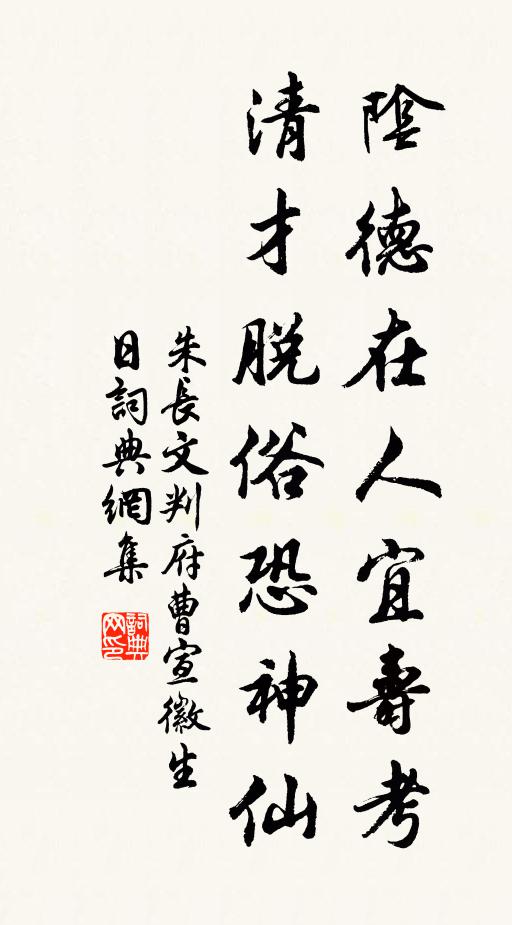 陰德在人宜壽考
清才脫俗恐神仙
朱長文判府曹宣徽生
日詞典網集
詞典
网印